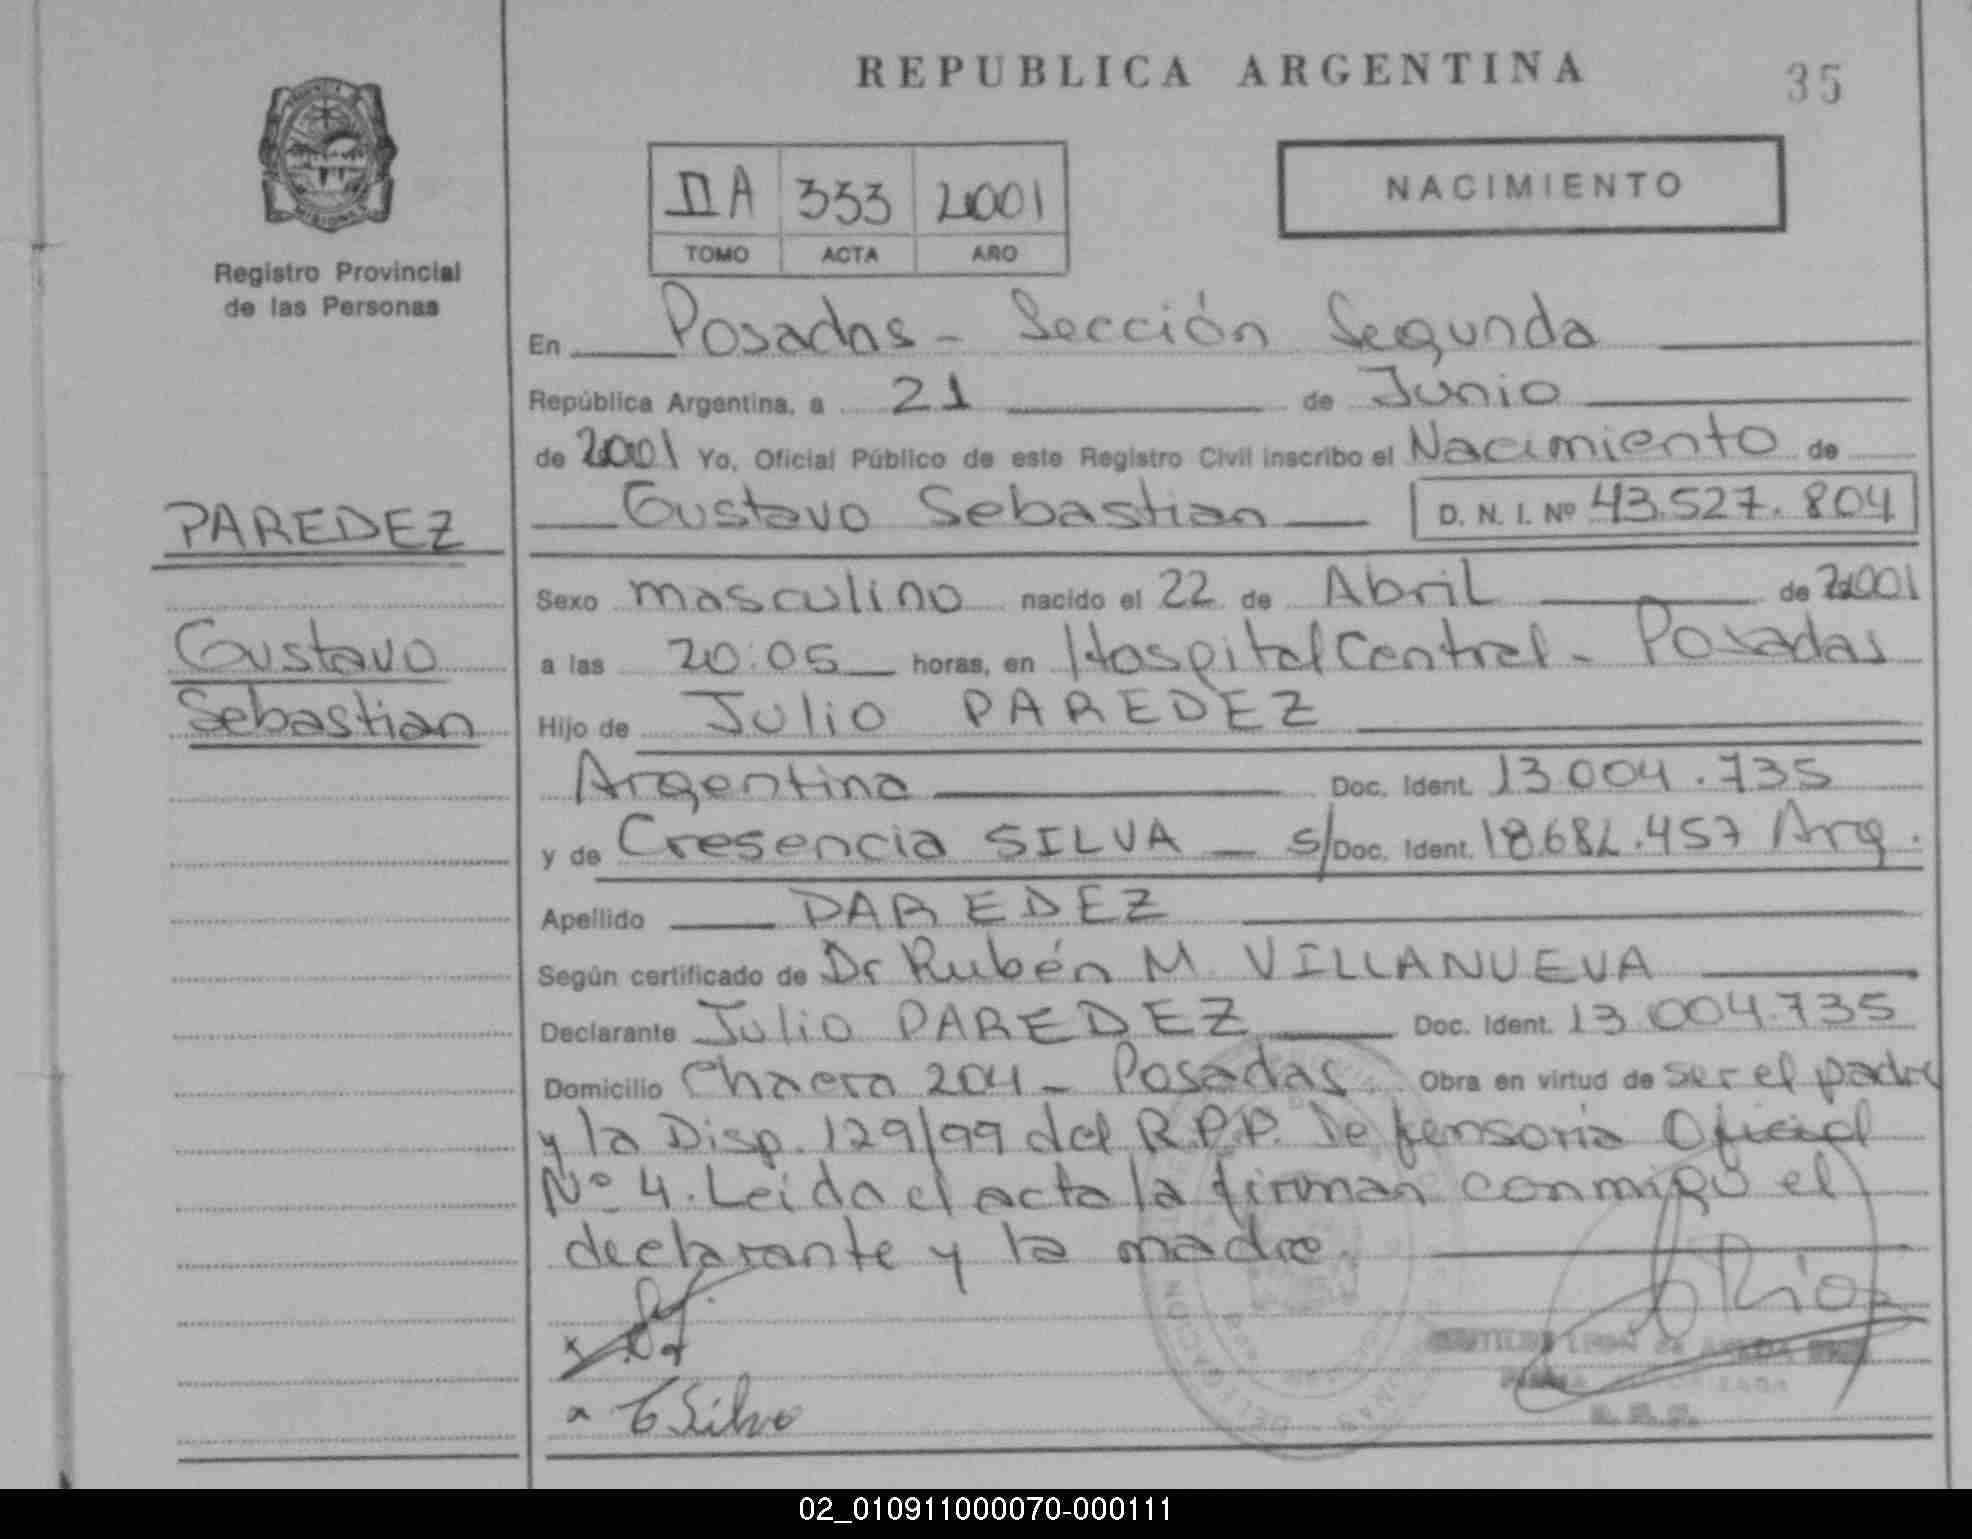 REPUBLICA ARGENTINA
35
NACIMIENTO
IIA 333 2001
TOMO ACTA AÑO
Registro Provincial
de las Personas
En Posadas - Sección Segunda
República Argentina, a 21 de Junio
de 2001 Yo, Oficial Público de este Registro Civil inscribo el Nacimiento de
Gustavo Sebastian D. N. I. Nº 43.527.804
PAREDEZ
Gustavo
Sebastian
Sexo masculino nacido el 22 de Abril de 2001
a las 20:05 horas, en Hospital Central - Posadas
Hijo de Julio PAREDEZ
Argentina Doc. Ident. 13.004.735
y de Cresencia SILVA s/Doc. Ident. 18.682.457 Arg.
Apellido PAREDEZ
Según certificado de Dr Rubén M. VILLANUEVA
Declarante Julio PAREDEZ Doc. Ident. 13.004.735
Domicilio Chacra 204 - Posadas Obra en virtud de ser el padre
y la Disp. 129/99 del R.P.P. Defensoria Oficial
Nº 4. Leida el acta la firman conmigo el
declarante y la madre.
Rios
x C Silva
02_010911000070-000111